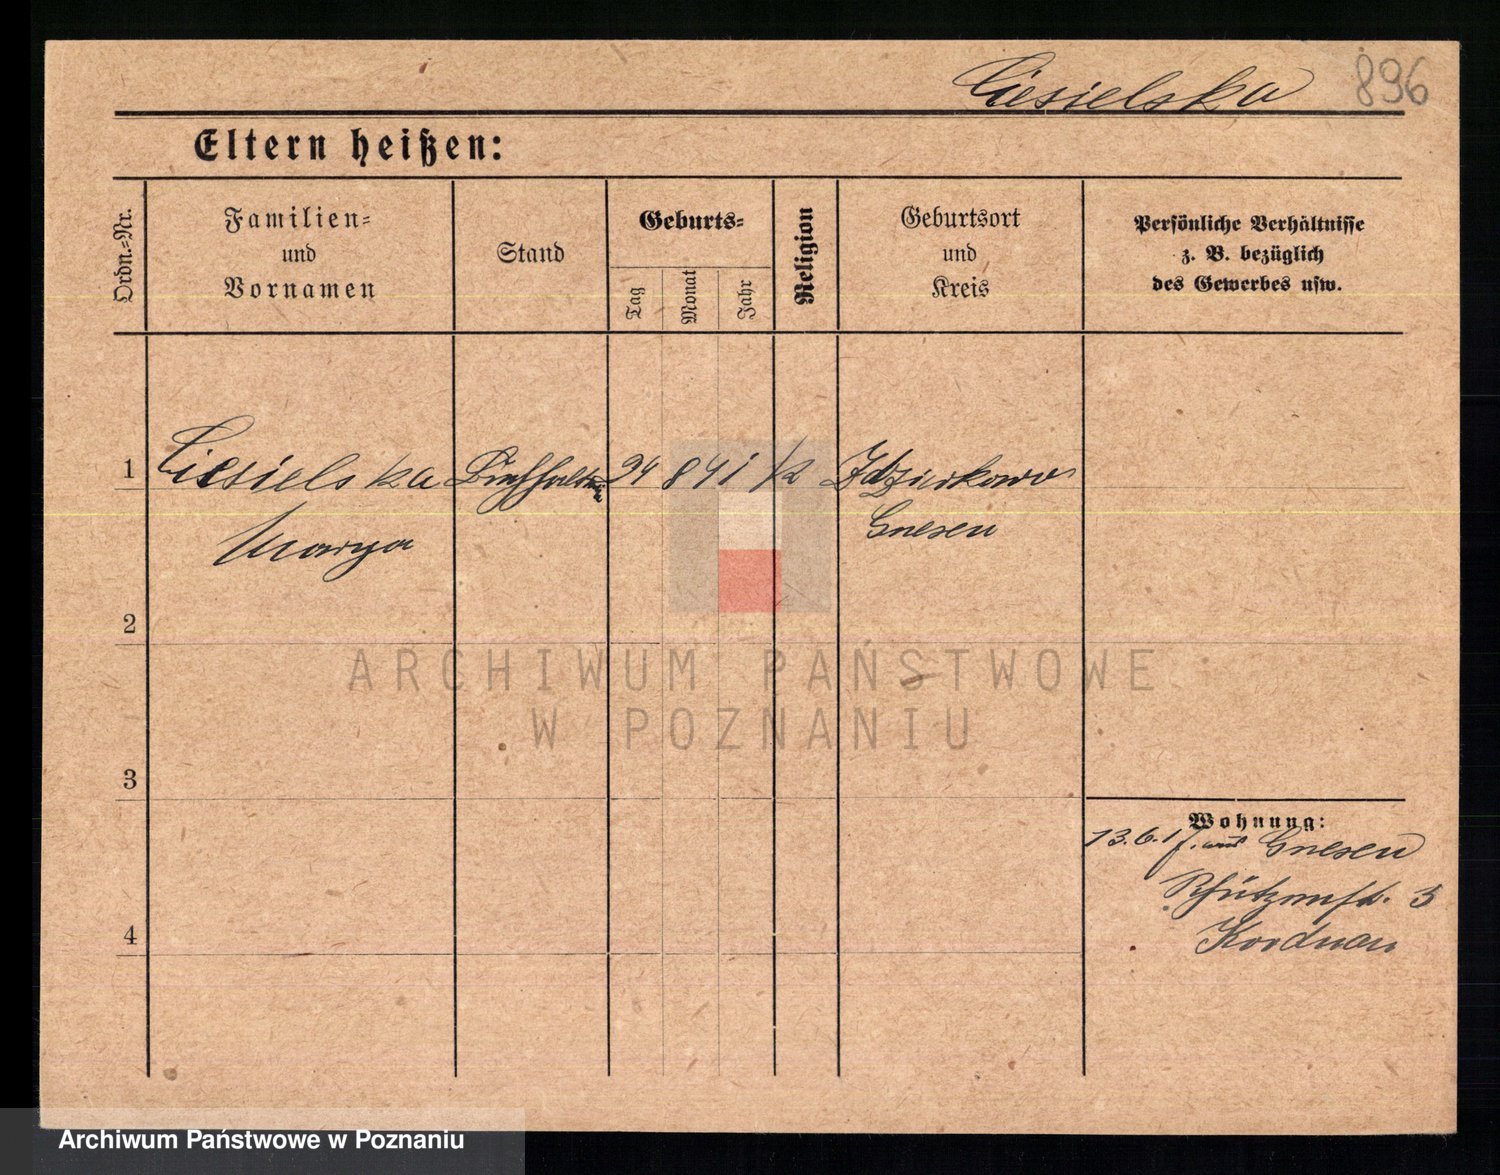 Ciesielska 896
Eltern heißen:
Ordn.=Nr.
Familien=
und
Vornamen
Stand
Geburts=
Tag
Monat
Jahr
Religion
Geburtsort
und
Kreis
Persönliche Verhältnisse
z. B. bezüglich
des Gewerbes usw.
1 Ciesielska 24 8 91 k
Marya Gnesen
2
3
4
Wohnung:
13.6.17. aus Gnesen
Schützenstr. 5
ARCHIWUM PAŃSTWOWE
W POZNANIU
Archiwum Państwowe w Poznaniu